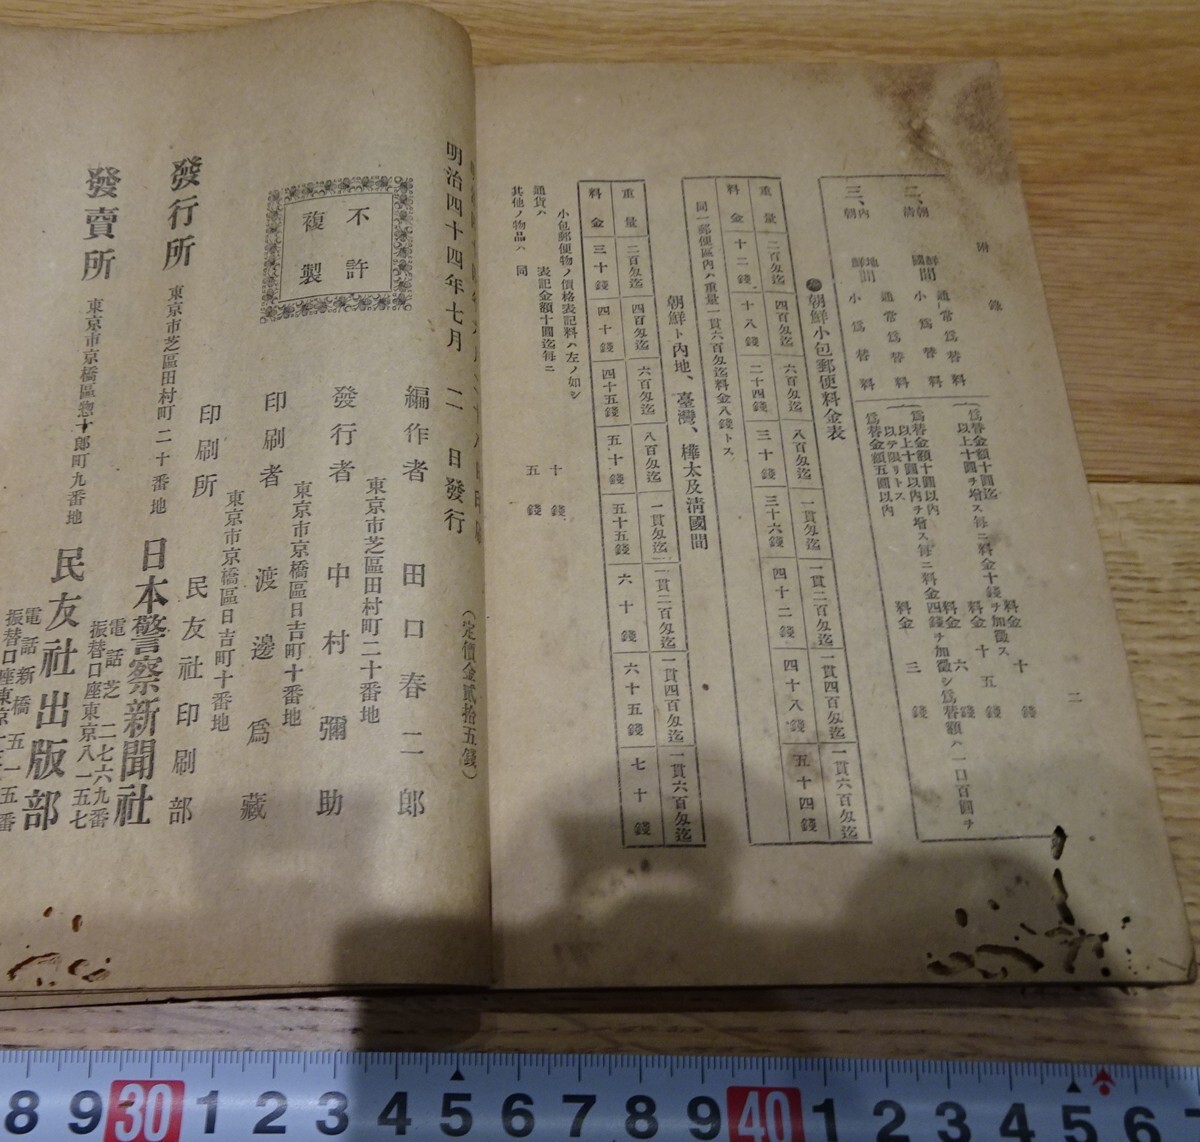 附錄
二
二、朝鮮清國間
通常爲替料
小爲替料
三、內地朝鮮間
通常爲替料
小爲替料
爲替金額十圓迄 料金 十錢
以上十圓チ增ス每ニ料金十錢チ加徵ス
爲替金額十圓以內 料金 六錢
以上十圓以內チ增ス每ニ料金四錢チ加徵シ爲替額ハ一口百圓チ
以テ限リトス
爲替金額五圓以內 料金 三錢
朝鮮小包郵便料金表
重量 二百匁迄 四百匁迄 六百匁迄 八百匁迄 一貫匁迄 一貫二百匁迄 一貫四百匁迄 一貫六百匁迄
料金 十二錢 十八錢 二十四錢 三十錢 三十六錢 四十二錢 四十八錢 五十四錢
同一郵便區內ハ重量一貫六百匁迄料金八錢トス
朝鮮ト內地、臺灣、樺太及清國間
重量 二百匁迄 四百匁迄 六百匁迄 八百匁迄 一貫匁迄 一貫二百匁迄 一貫四百匁迄 一貫六百匁迄
料金 三十錢 四十錢 四十五錢 五十錢 五十五錢 六十錢 六十五錢 七十錢
小包郵便物ノ價格表記料ハ左ノ如シ
通貨ハ 表記金額十圓迄每ニ 十錢
其他ノ物品ハ 同 五錢
明治四十四年七月二日發行
（定價金貳拾五錢）
不許
複製
編作者 田口春二郎
東京市芝區田村町二十番地
發行者 中村彌助
東京市京橋區日吉町十番地
印刷者 渡邊爲藏
東京市京橋區日吉町十番地
印刷所 民友社印刷部
發行所 東京市芝區田村町二十番地 日本警察新聞社
電話芝二七六九番
振替口座東京八一五七
發賣所 東京市京橋區惣十郎町九番地 民友社出版部
電話新橋五一五番
振替口座東京
8 9 30 1 2 3 4 5 6 7 8 9 40 1 2 3 4 5 6 7